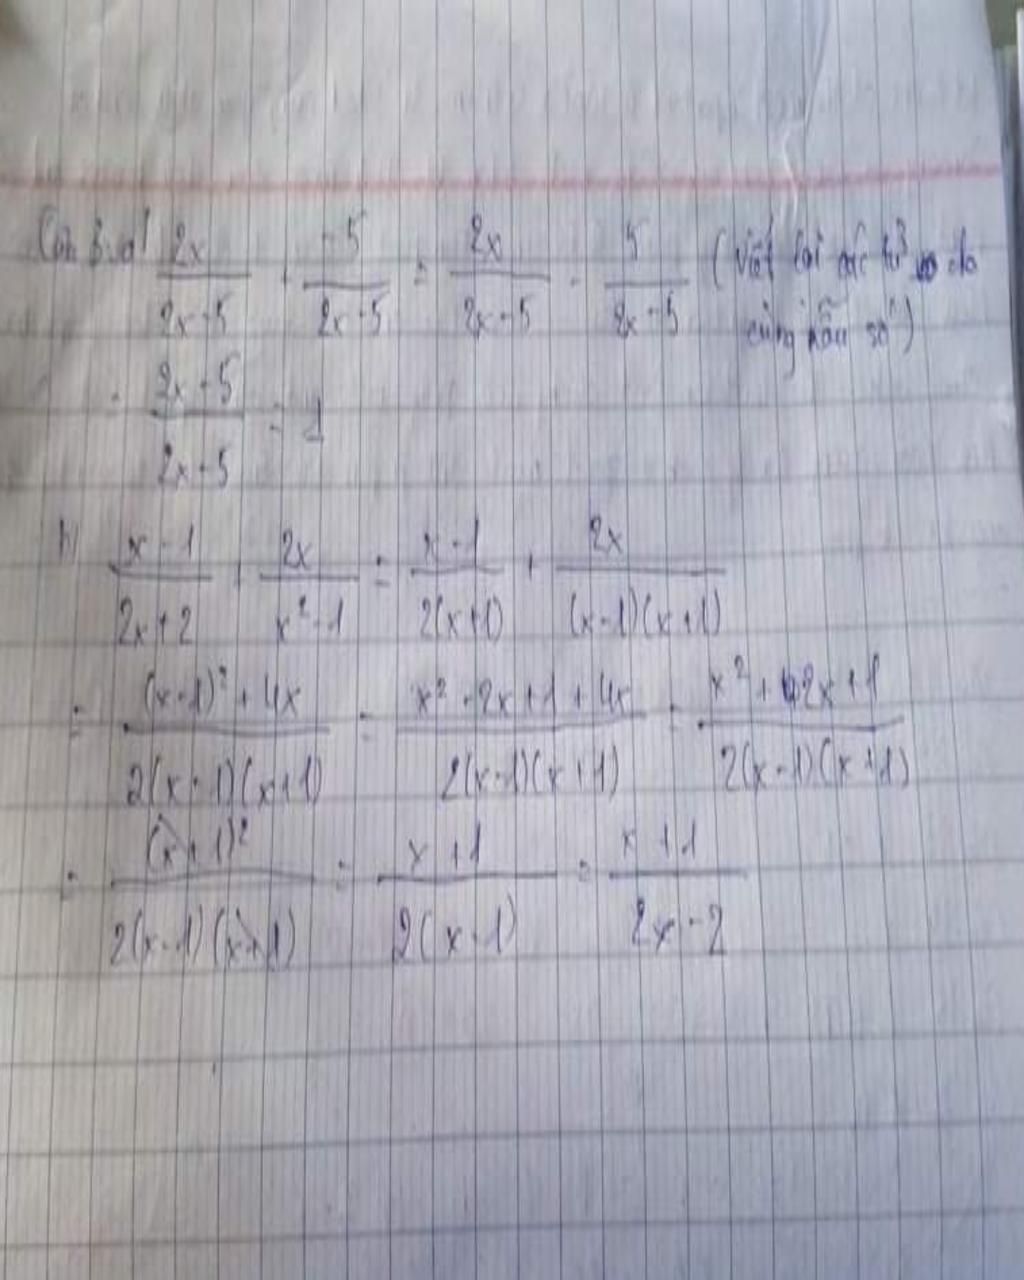 Câu 3: a) \frac{2x}{2x-5} + \frac{-5}{2x-5} = \frac{2x}{2x-5} - \frac{5}{2x-5} (Viết lại các tử do
cùng mẫu số)
= \frac{2x-5}{2x-5} = 1
b) \frac{x-1}{2x+2} + \frac{2x}{x^2-1} = \frac{x-1}{2(x+1)} + \frac{2x}{(x-1)(x+1)}
= \frac{(x-1)^2+4x}{2(x-1)(x+1)} = \frac{x^2-2x+1+4x}{2(x-1)(x+1)} = \frac{x^2+2x+1}{2(x-1)(x+1)}
= \frac{(x+1)^2}{2(x-1)(x+1)} = \frac{x+1}{2(x-1)} = \frac{x+1}{2x-2}